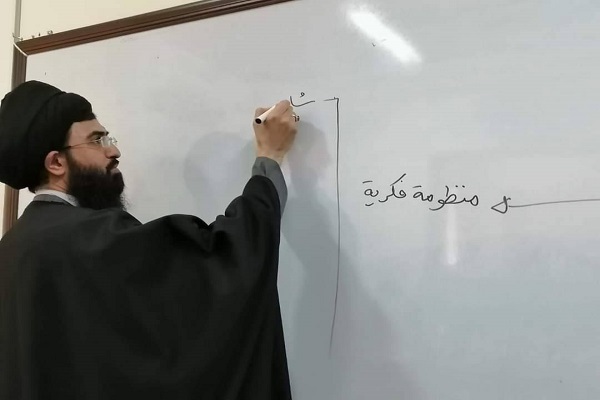 منظومة فكرية